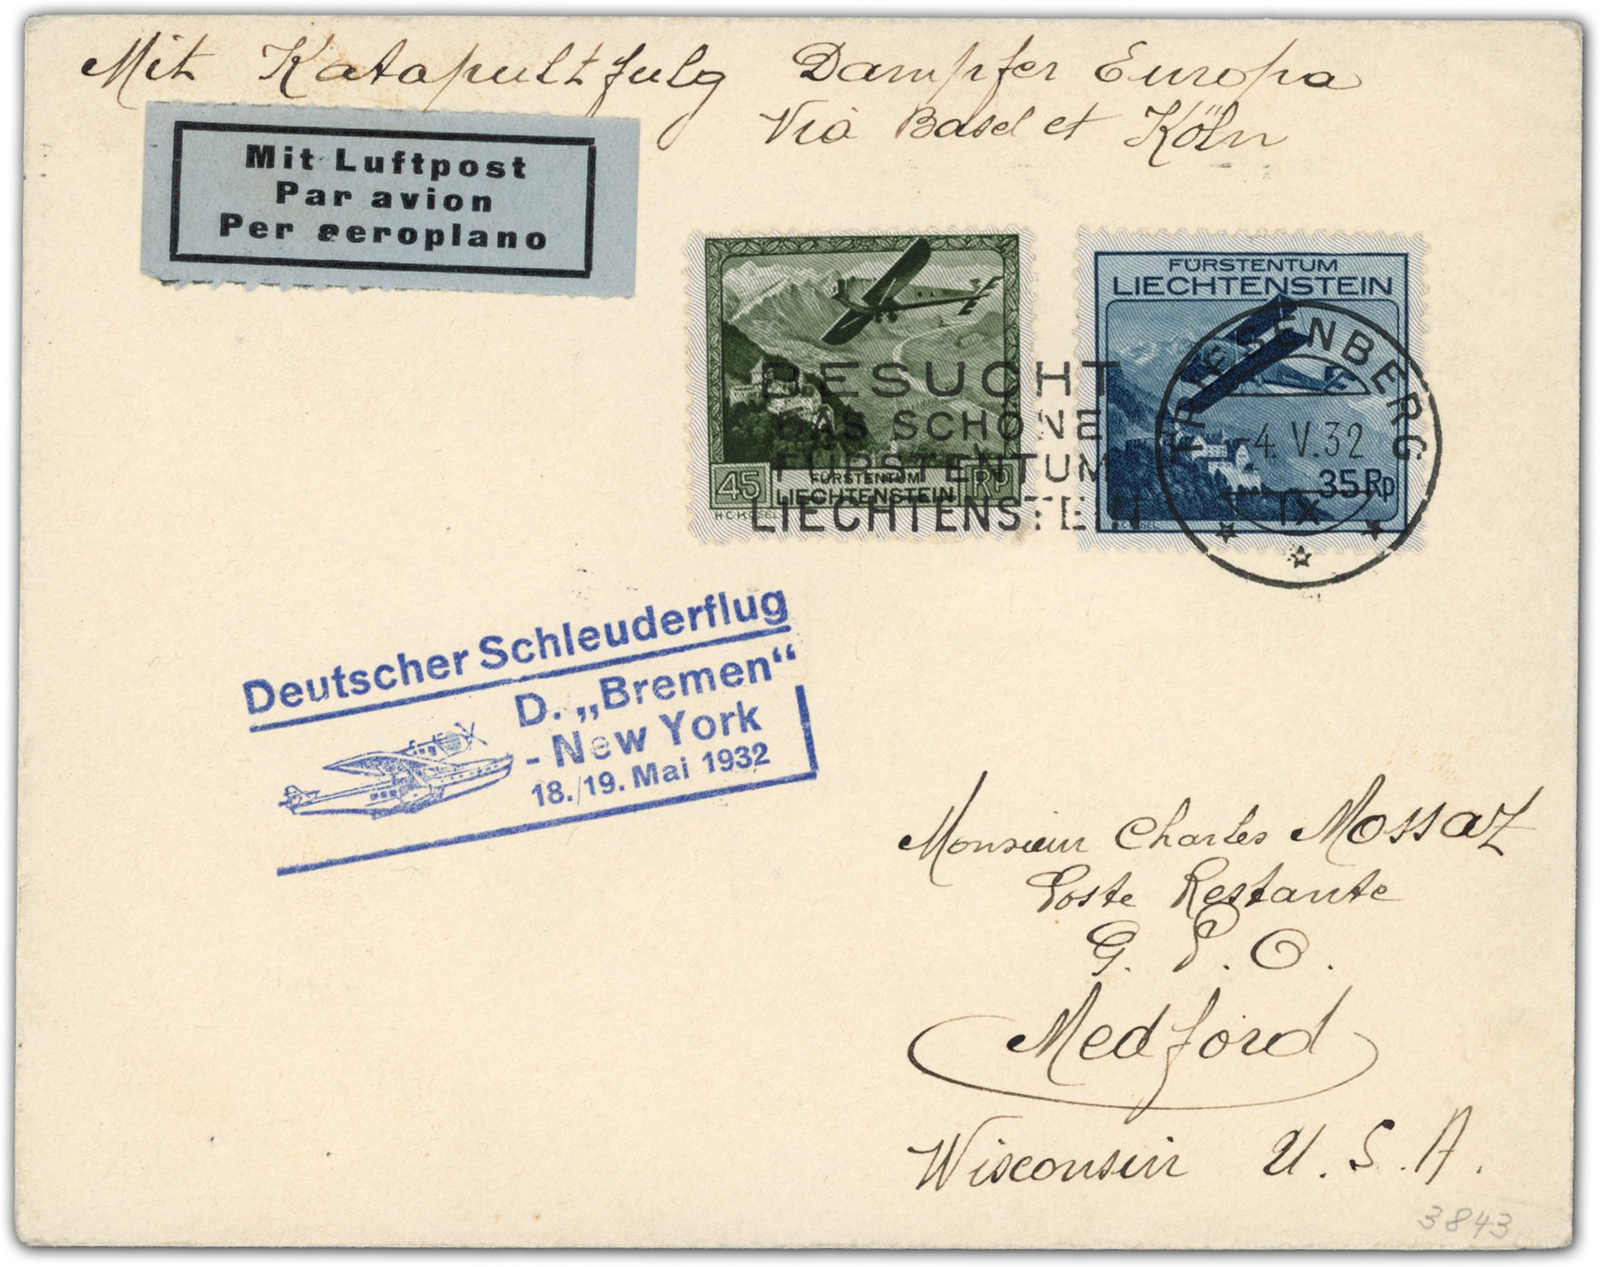 Mit Katapultfulg Dampfer Europa
Via Basel et Köln
Mit Luftpost
Par avion
Per aeroplano
45
FÜRSTENTUM
LIECHTENSTEIN
RP
FÜRSTENTUM
LIECHTENSTEIN
35 Rp
BESUCHT
DAS SCHÖNE
FÜRSTENTUM
LIECHTENSTEIN
TRIESENBERG
-4.V.32
IX
Deutscher Schleuderflug
D. „Bremen“
- New York
18./19. Mai 1932
Monsieur Charles Mossaz
Poste Restante
G. P. O.
Medford
Wisconsin U. S. A.
3843